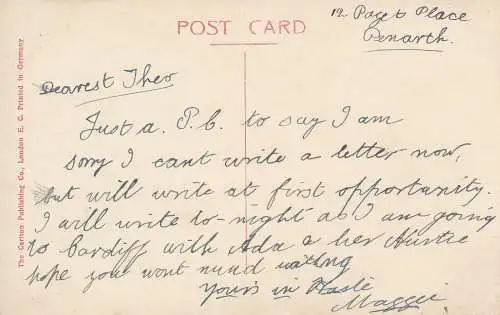 POST CARD
12. Paget Place
Penarth.
Dearest Theo
Just a. P.C. to say I am
sorry I cant write a letter now,
but will write at first opportunity.
I will write to-night as I am going
to Cardiff with Ada & her Auntie
hope you wont mind waiting
Yours in Haste
Maggie.
The Carlton Publishing Co., London E. C. Printed in Germany